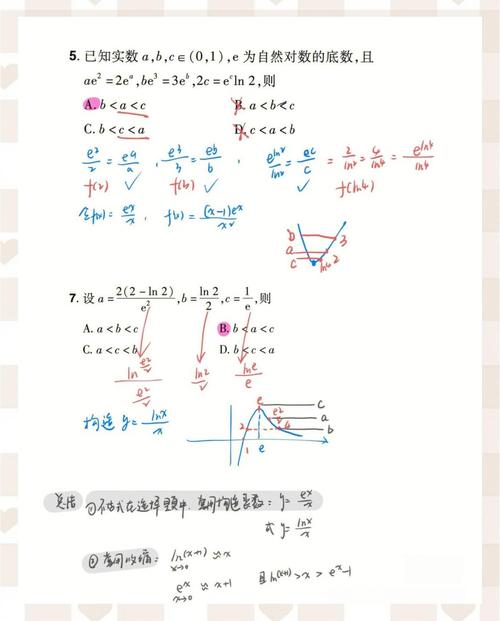 5. 已知实数 a,b,c∈(0,1),e 为自然对数的底数,且
ae²=2eᵃ,be³=3eᵇ,2c=eᶜln 2,则
A. b<a<c B. a<b<c
C. b<c<a D. c<a<b
e²/2=eᵃ/a, e³/3=eᵇ/b, e^(ln2)/ln2=eᶜ/c=2/ln2=4/ln4=e^(ln4)/ln4
f(2) ✓ f(b) ✓ ✓ f(ln4)
令f(x)=eˣ/x, f'(x)=(x-1)eˣ/x²
b 3
a 2
c ln4
7. 设 a=2(2-ln 2)/e²,b=ln 2/2,c=1/e,则
A. a<b<c B. b<a<c
C. a<c<b D. b<c<a
ln(e²/2)/(e²/2) ln2/2 lne/e
构造 y=lnx/x
e c
e²/2 a
2 4 b
1 e
总结 ①不等式在选择题中,常用构造函数:y=eˣ/x
或 y=lnx/x
②常用放缩: ln(x+1)≈x
x→0
eˣ≈x+1 且ln(x+1)>x>eˣ-1
x→0